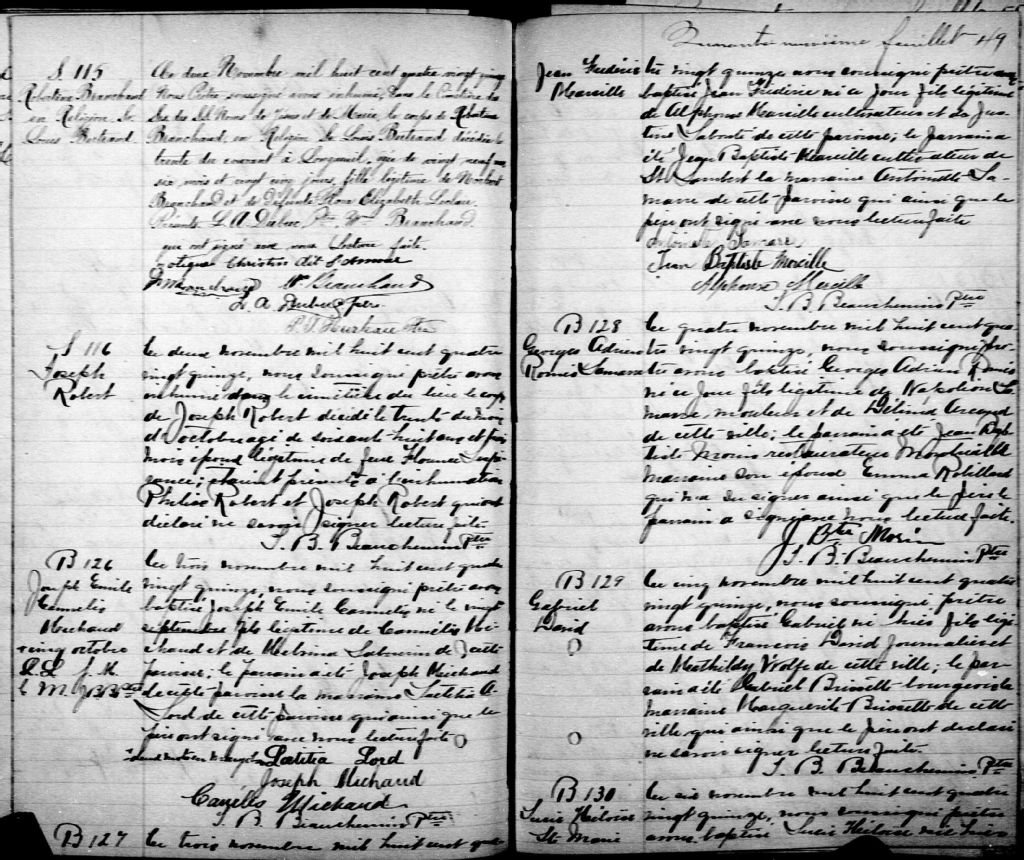 S. 115
Robertine Branchaud
en Religion Sr.
Louis Bertrand
Ce deux Novembre mil huit cent quatre vingt quinze
Nous Prêtre soussigné avons inhumé, dans le Cimetière des
des SS. Noms de Jésus et de Marie, le corps de Robertine
Branchaud, en Religion Sr Louis Bertrand décédée le
trente du courant à Longueuil, âgée de vingt neuf ans
six mois et vingt cinq jours, fille légitime de Norbert
Branchaud et de Défunte Flora Elizabeth
Présents L. A. Dubuc Ptre Wm Branchaud
qui ont signé avec nous lecture faite.
Christin dit St Amour
W. Branchaud
L. A. Dubuc, ptre.
Ptre
S 116
Joseph
Robert
Ce deux novembre mil huit cent quatre
vingt quinze, nous soussigné prêtre avons
inhumé dans le cimetière du lieu le corps
de Joseph Robert décédé le trente du mois
d'octobre agé de soixante-huit ans et
mois époux légitime de feue Flavie
; étaient présents à l'inhumation
Philias Robert et Joseph Robert qui ont
déclaré ne savoir signer lecture faite
T. B. Beauchemin Ptre
B 126
Joseph Emile
Cannelis
Michaud
+ cinq octobre
L. L. J. M.
C. M. JBB ptre
Ce trois novembre mil huit cent quatre
vingt quinze, nous soussigné prêtre avons
baptisé Joseph Emile Cannelis né le vingt
septembre fils légitime de Cannelis Mi-
chaud et de Melvina de cette
paroisse; le parrain a été Joseph Michaud
de cette paroisse la marraine Laetitia
Lord de cette paroisse qui ainsi que le
père ont signé avec nous lecture faite
+ deux mots en marge bon Laetitia Lord
Joseph Michaud
Michaud
T. B. Beauchemin Ptre
B 127
Ce trois novembre mil huit cent qua-
Quarante neuvième feuillet 49
Jean Fréderic
Marcille
tre vingt quinze nous soussigné prêtre avons
baptisé Jean Fréderic né ce jour fils légitime
de Alphonse Marcille cultivateur et de Jus-
tine Labonté de cette paroisse; le parrain a
été Jean Baptiste Marcille cultivateur de
St Lambert la marraine Antoinette La-
marre de cette paroisse qui ainsi que le
père ont signé avec nous lecture faite
Antoinette Lamarre
Jean Baptiste Marcille
Alphonse Marcille
T. B. Beauchemin Ptre
B 128
Georges Adrien
Roméo Lamarre
Ce quatre novembre mil huit cent qua-
tre vingt quinze, nous soussigné prê-
tre avons baptisé Georges Adrien Roméo
né ce jour fils légitime de Napoléon La-
marre, mouleur et de Délima Arcand
de cette ville; le parrain a été Jean Bap-
tiste Morin restaurateur Montréal la
marraine son épouse Emma Robillard
qui n'a su signer ainsi que le père le
parrain a signé avec nous lecture faite.
J. Bte Morin
T. B. Beauchemin Ptre
B 129
Gabriel
David
Ce cinq novembre mil huit cent quatre
vingt quinze, nous soussigné prêtre
avons baptisé Gabriel né hier fils légi-
time de Francois David journalier et
de Mathildy Wolfe de cette ville; le par-
rain a été Gabriel Brissette bourgeois la
marraine Marguerite Brissette de cette
ville qui ainsi que le père ont déclaré
ne savoir signer lecture faite.
T. B. Beauchemin Ptre
B 130
Lucie Héloïse
Ste Marie
Ce six novembre mil huit cent quatre
vingt quinze, nous soussigné prêtre
avons baptisé Lucie Héloïse née hier